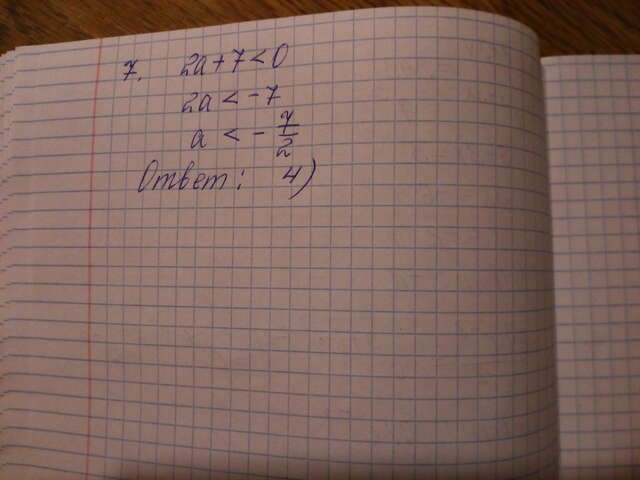 7. 2a+7<0
2a < -7
a < - 7/2
Ответ: 4)